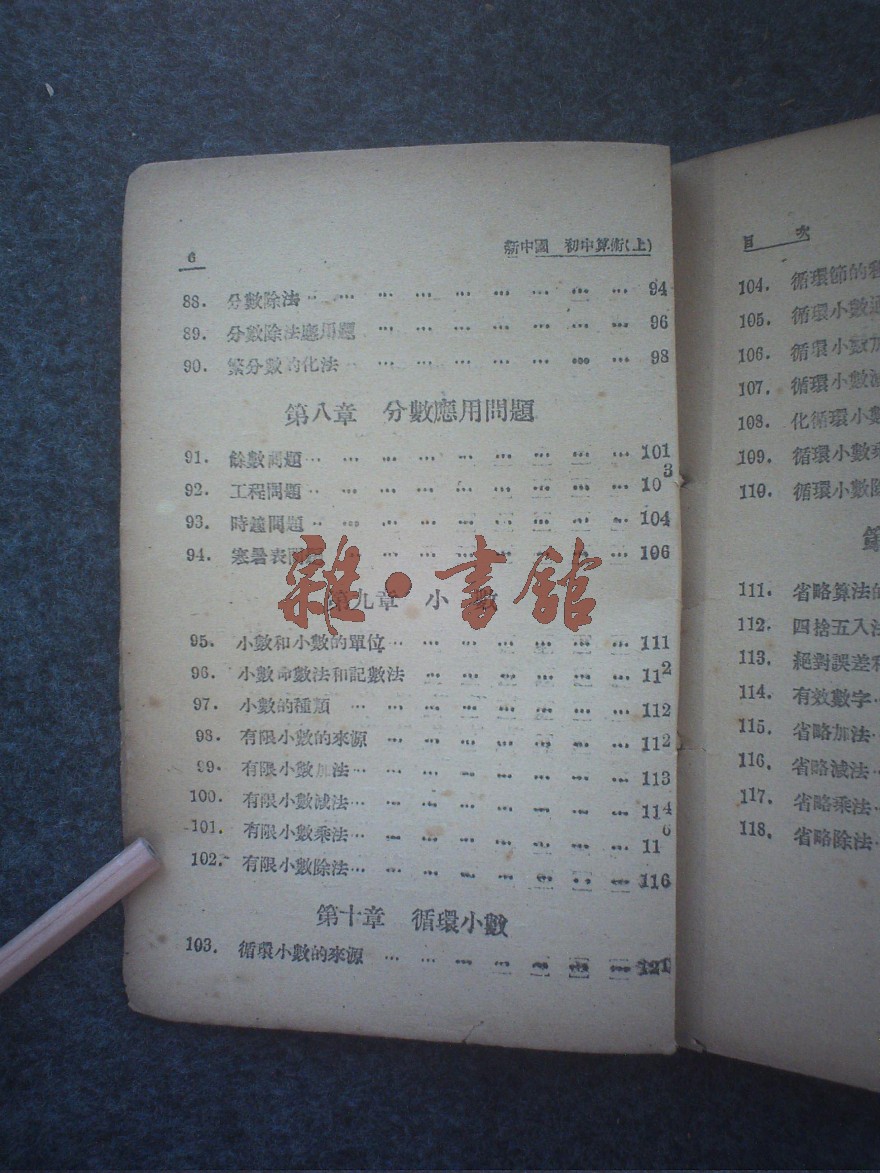 6 新中國 初中算術(上)
88. 分數除法 … … … … … … … … … 94
89. 分數除法應用題 … … … … … … … 96
90. 繁分數的化法 … … … … … … … … 98
第八章 分數應用問題
91. 餘數問題 … … … … … … … … … 101
92. 工程問題 … … … … … … … … … 103
93. 時鐘問題 … … … … … … … … … 104
94. 寒暑表問題 … … … … … … … … 106
雜·書館
第九章 小 數
95. 小數和小數的單位 … … … … … … … 111
96. 小數命數法和記數法 … … … … … … 112
97. 小數的種類 … … … … … … … … 112
98. 有限小數的來源 … … … … … … … 112
99. 有限小數加法 … … … … … … … … 113
100. 有限小數減法 … … … … … … … … 114
101. 有限小數乘法 … … … … … … … … 116
102. 有限小數除法 … … … … … … … … 116
第十章 循環小數
103. 循環小數的來源 … … … … … … … 121
目 次
104. 循環節的
105. 循環小數
106. 循環小數加
107. 循環小數減
108. 化循環小數
109. 循環小數乘
110. 循環小數除
第
111. 省略算法的
112. 四捨五入法
113. 絕對誤差和
114. 有效數字…
115. 省略加法…
116. 省略減法…
117. 省略乘法…
118. 省略除法…